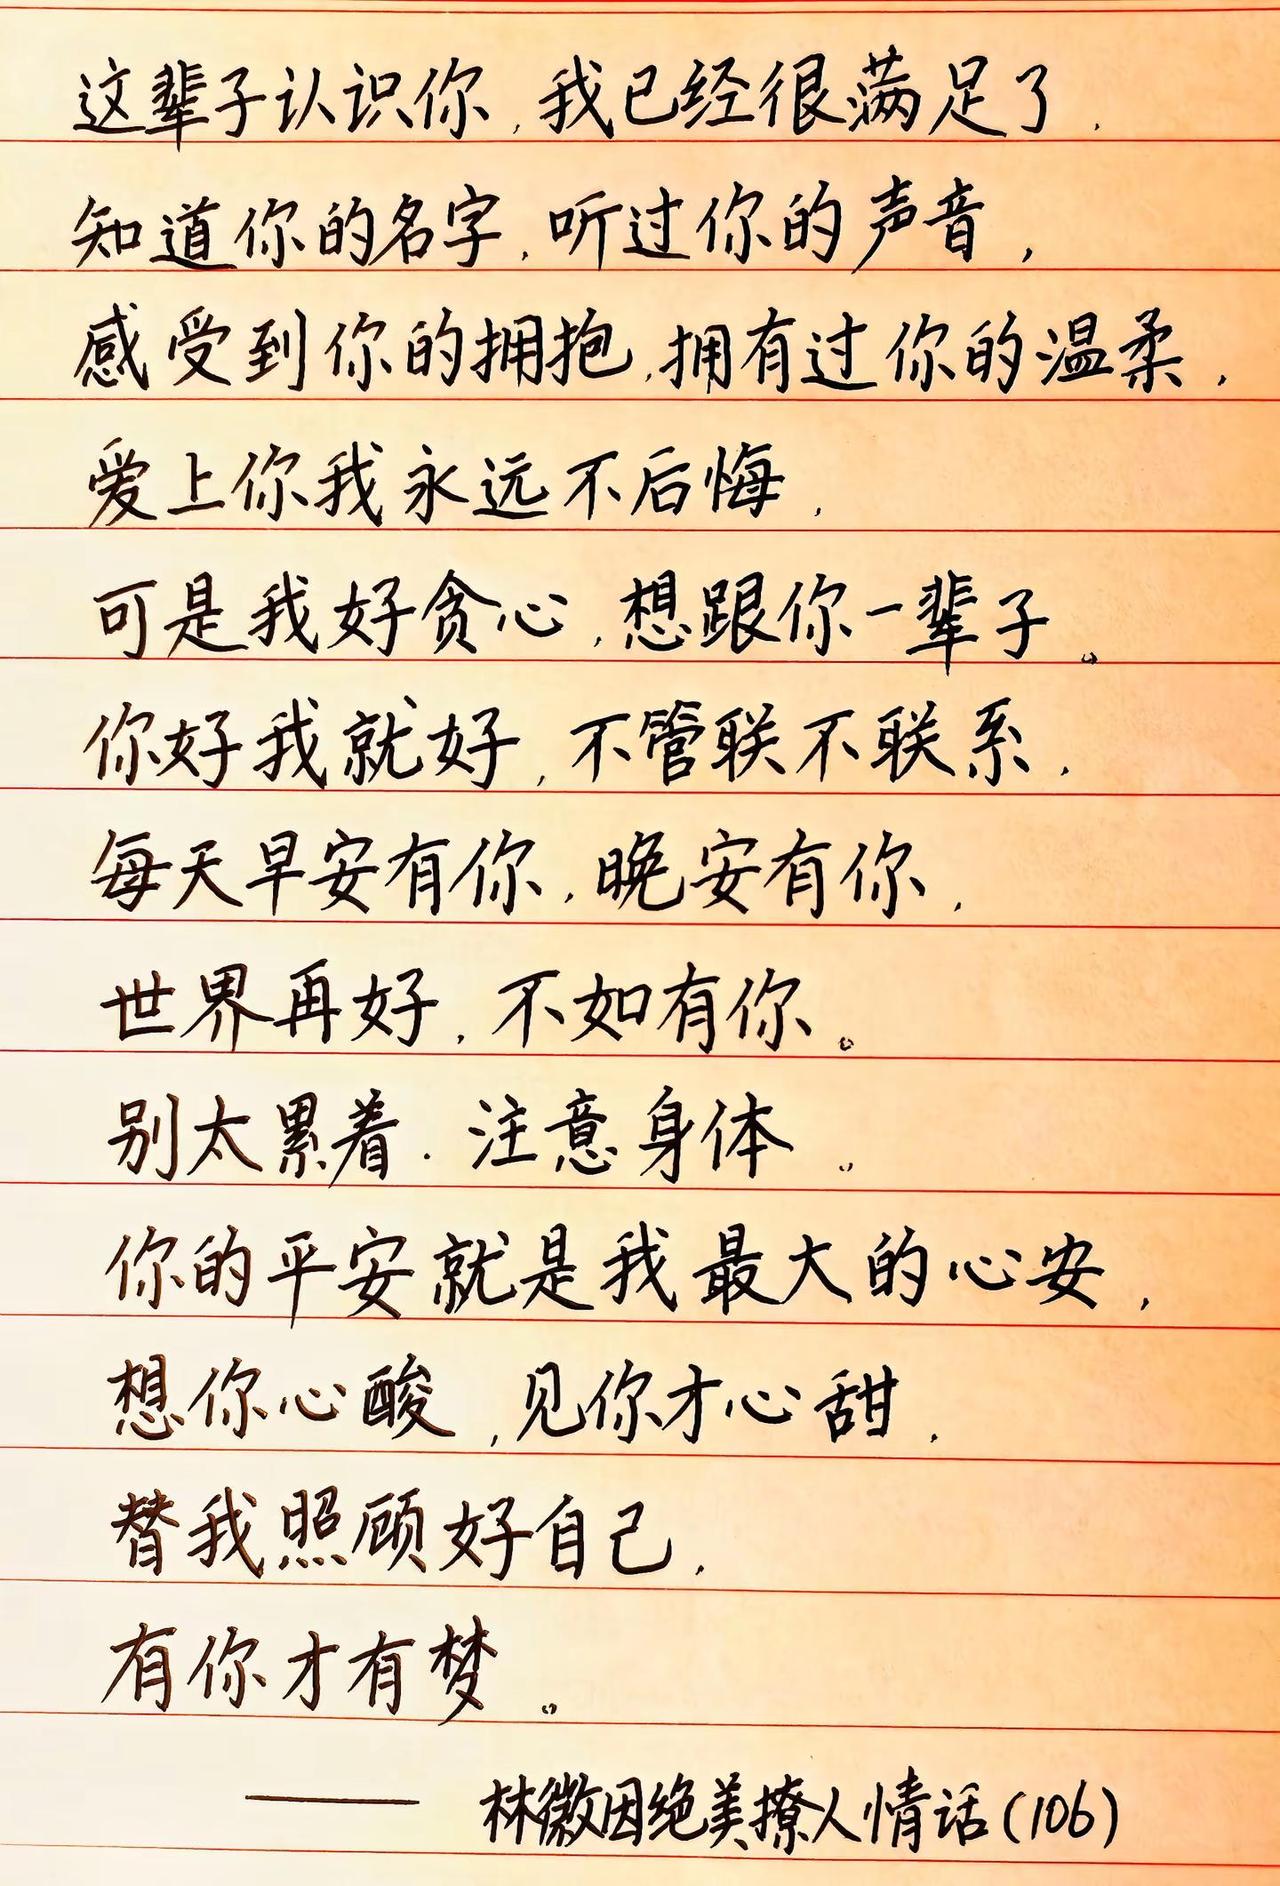 这辈子认识你，我已经很满足了，
知道你的名字，听过你的声音，
感受到你的拥抱，拥有过你的温柔，
爱上你我永远不后悔，
可是我好贪心，想跟你一辈子。
你好我就好，不管联不联系，
每天早安有你，晚安有你，
世界再好，不如有你。
别太累着．注意身体。
你的平安就是我最大的心安，
想你心酸，见你才心甜，
替我照顾好自己，
有你才有梦。
—— 林徽因绝美撩人情话(106)